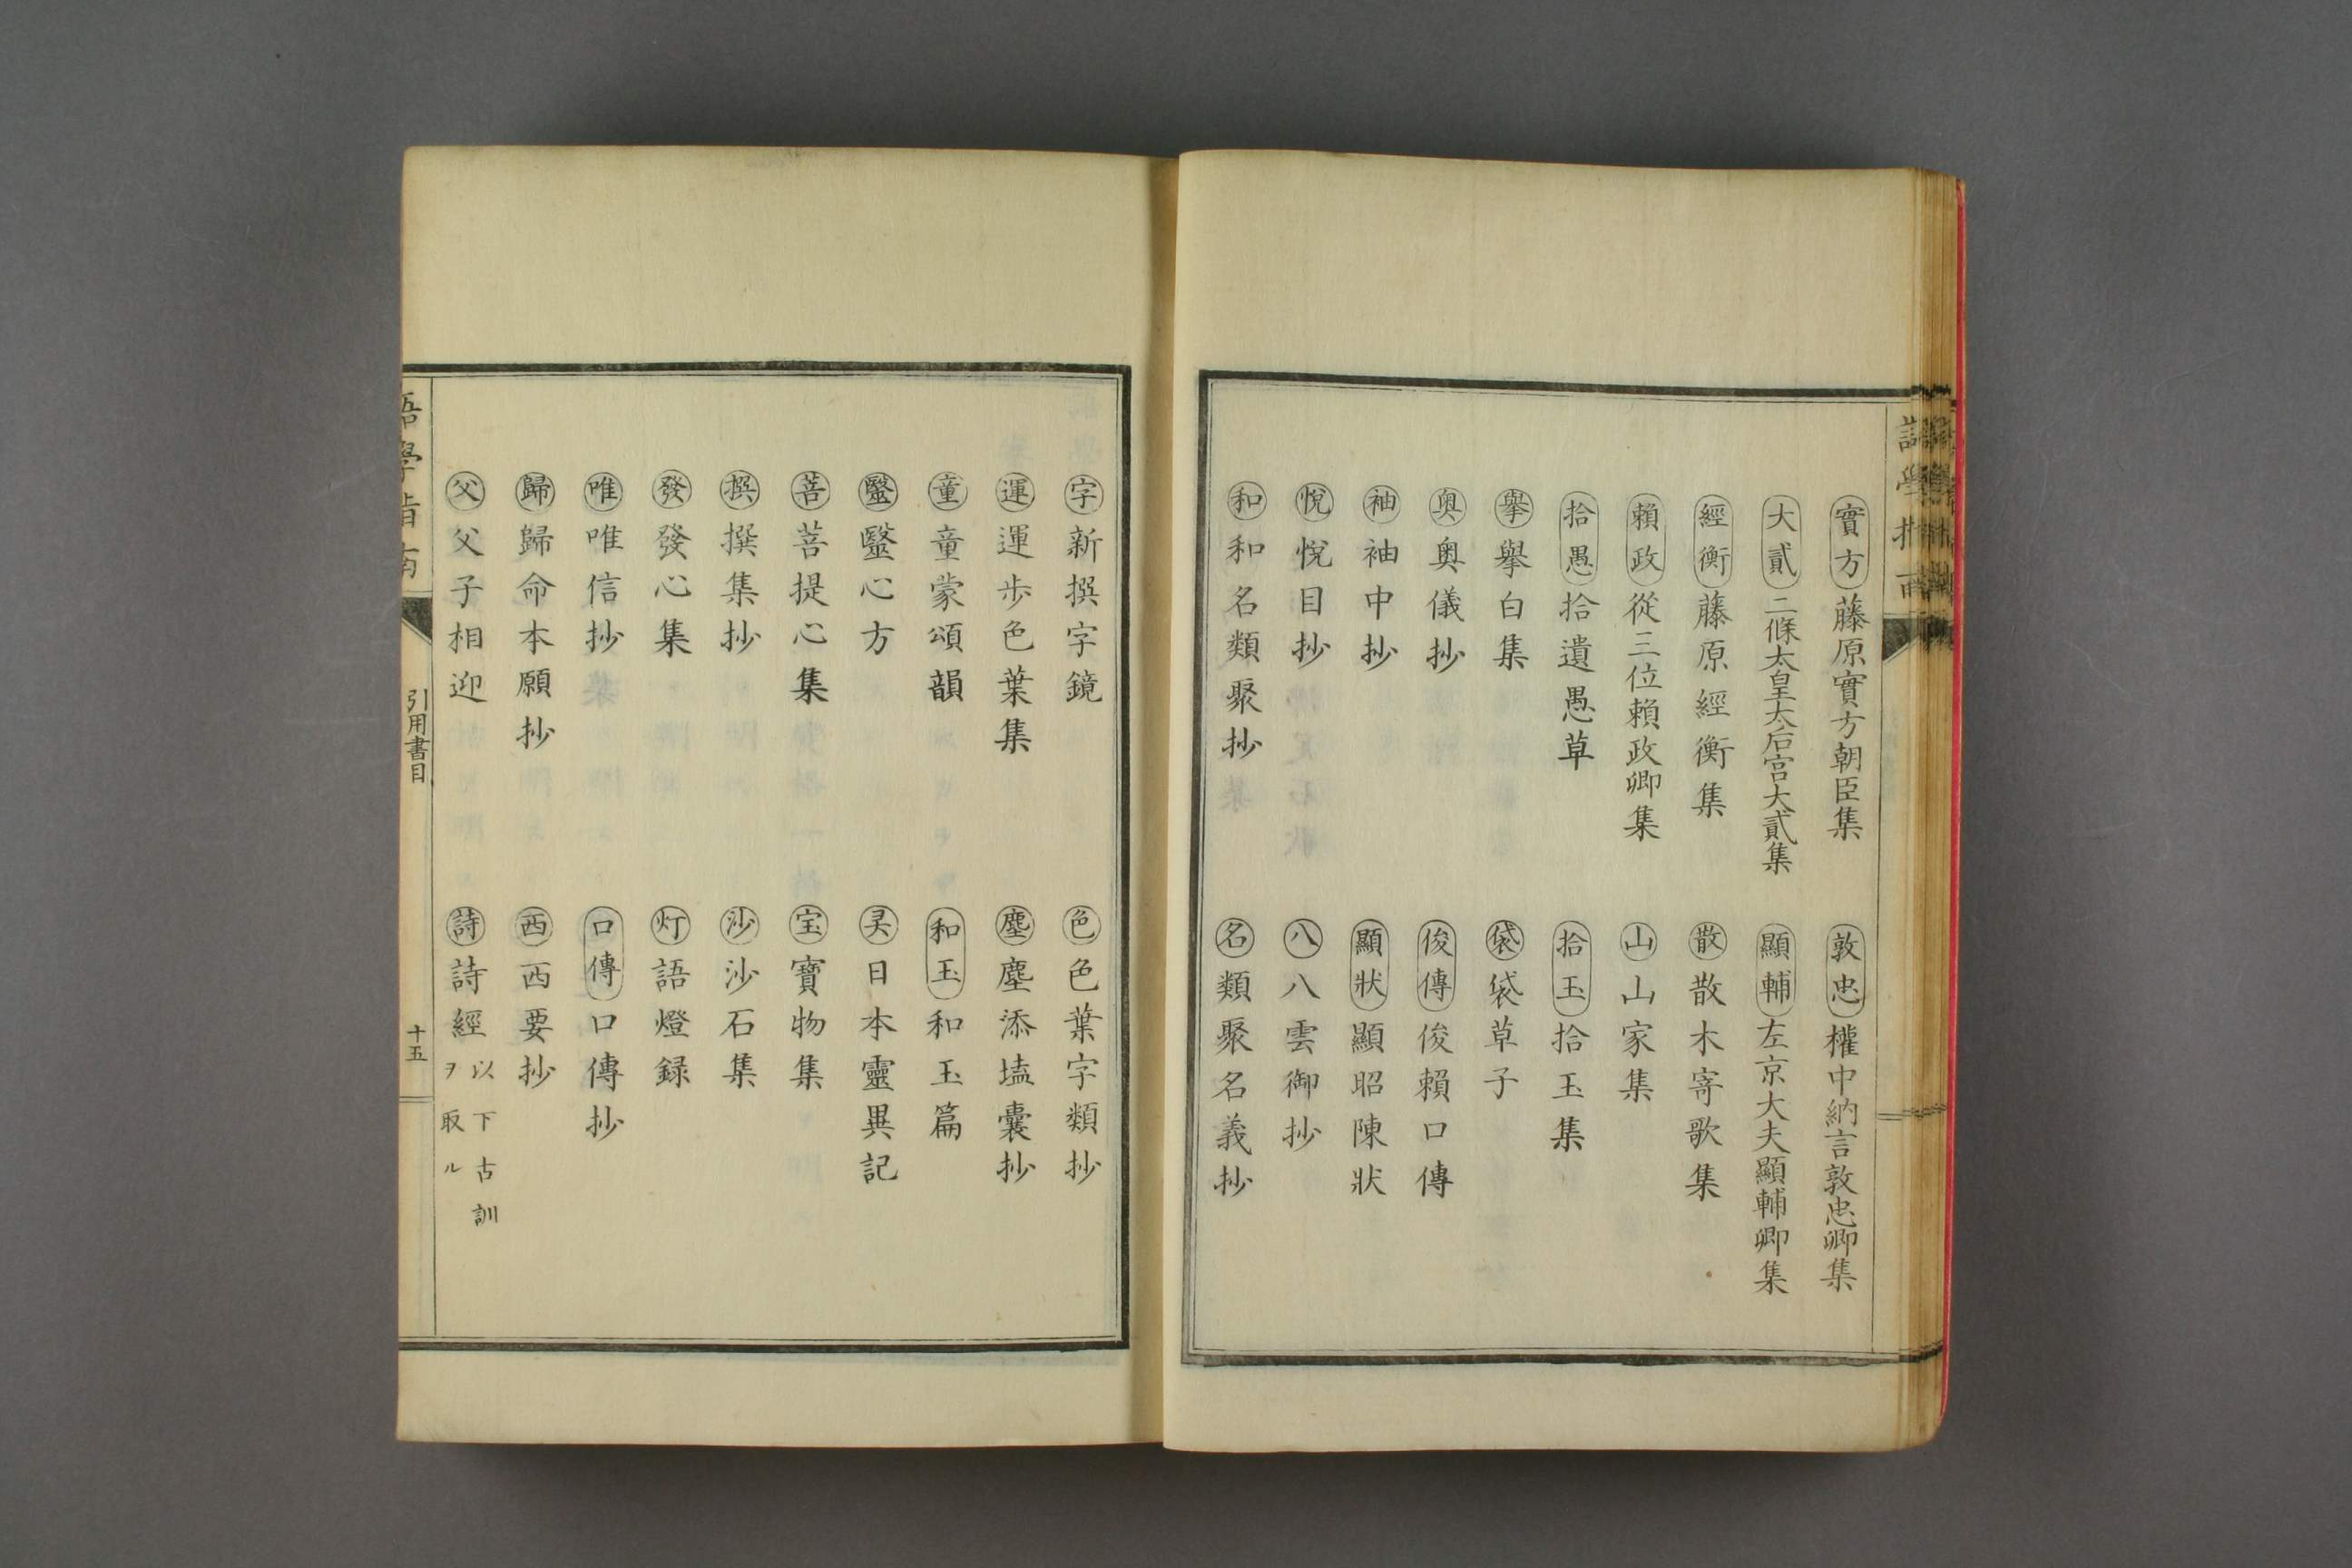 實方 藤原實方朝臣集
敦忠 權中納言敦忠卿集
大貳 二條太皇太后宮大貳集
顯輔 左京大夫顯輔卿集
經衡 藤原經衡集
散 散木寄歌集
賴政 從三位賴政卿集
山 山家集
拾愚 拾遺愚草
拾玉 拾玉集
擧 擧白集
袋 袋草子
奥 奥儀抄
俊傳 俊賴口傳
袖 袖中抄
顯狀 顯昭陳狀
悅 悅目抄
八 八雲御抄
和 和名類聚抄
名 類聚名義抄
字 新撰字鏡
色 色葉字類抄
運 運步色葉集
塵 塵添壒囊抄
童 童蒙頌韻
和玉 和玉篇
毉 毉心方
灵 日本靈異記
菩 菩提心集
宝 寶物集
撰 撰集抄
沙 沙石集
發 發心集
灯 語燈録
唯 唯信抄
口傳 口傳抄
歸 歸命本願抄
西 西要抄
父 父子相迎
詩 詩經 以下古訓
ヲ取ル
語學指南
引用書目
十五